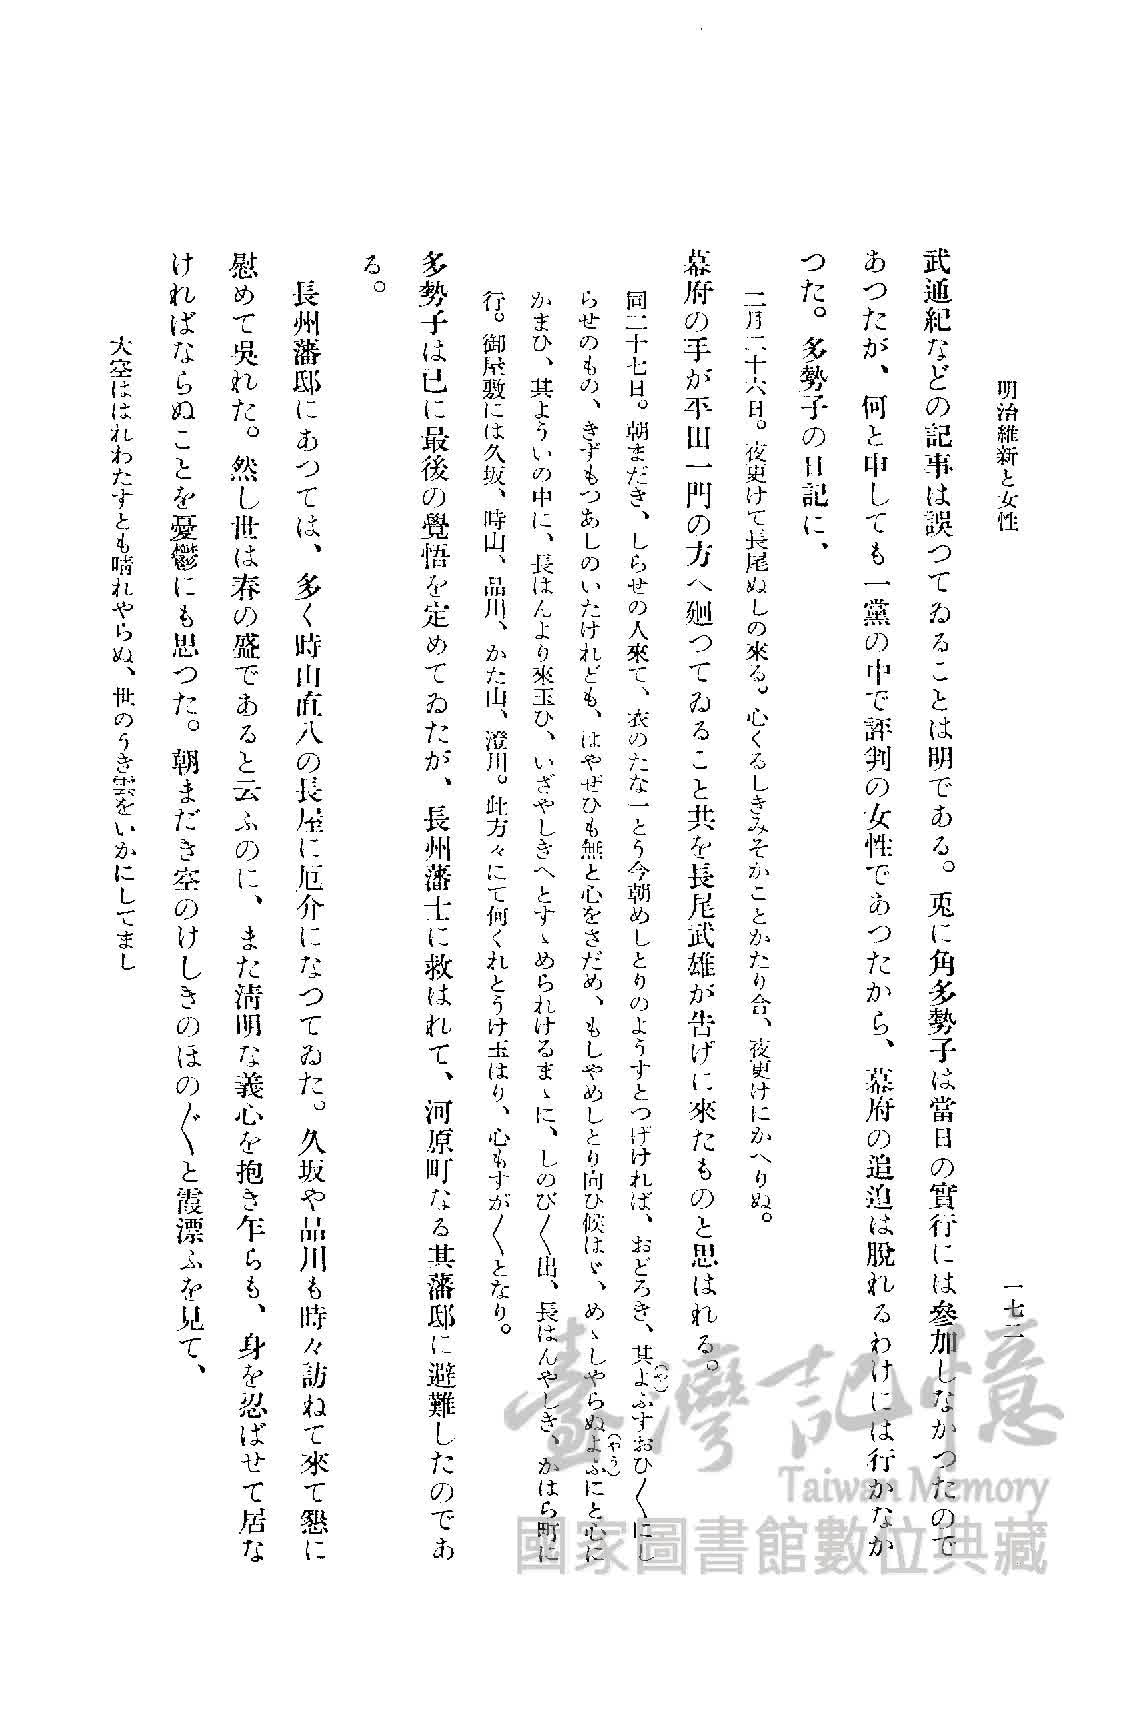 明治維新と女性
一七二
武通紀などの記事は誤つてゐることは明である。兎に角多勢子は當日の實行には參加しなかつたので
あつたが、何と申しても一黨の中で評判の女性であつたから、幕府の追迫は脱れるわけには行かなか
つた。多勢子の日記に、
二月二十六日。夜更けて長尾ぬしの來る。心くるしきみそかことかたり合、夜更けにかへりぬ。
幕府の手が平田一門の方へ廻つてゐること共を長尾武雄が告げに來たものと思はれる。
同二十七日。朝まだき、しらせの人來て、衣のたな一とう今朝めしとりのようすとつげければ、おどろき、其よふすおひ〱にし
らせのもの、きずもつあしのいたけれども、はやぜひも無と心をさだめ、もしやめしとり向ひ候はゞ、めゝしやらぬよふにと心に
かまひ、其よういの中に、長はんより來玉ひ、いざやしきへとすゝめられけるまゝに、しのび〱出、長はんやしき、かはら町に
行。御屋敷には久坂、時山、品川、かた山、澄川。此方々にて何くれとうけ玉はり、心もすが〱となり。
多勢子は已に最後の覺悟を定めてゐたが、長州藩士に救はれて、河原町なる其藩邸に避難したのであ
る。
長州藩邸にあつては、多く時山直八の長屋に厄介になつてゐた。久坂や品川も時々訪ねて來て懇に
慰めて吳れた。然し世は春の盛であると云ふのに、また淸明な義心を抱き乍らも、身を忍ばせて居な
ければならぬことを憂鬱にも思つた。朝まだき空のけしきのほの〲と霞漂ふを見て、
大空ははれわたすとも晴れやらぬ、世のうき雲をいかにしてまし
(やう)
(やう)
臺灣記憶
Taiwan Memory
國家圖書館數位典藏